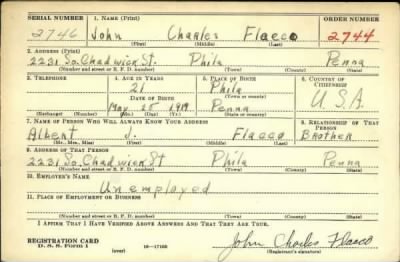 SERIAL NUMBER 1. NAME (Print) ORDER NUMBER
2746 John Charles Flacco 2744
(First) (Middle) (Last)
2. ADDRESS (Print)
2231 So. Chadwick St. Phila Penna
(Number and street or R. F. D. number) (Town) (County) (State)
3. TELEPHONE 4. AGE IN YEARS 5. PLACE OF BIRTH 6. COUNTRY OF CITIZENSHIP
21 Phila
DATE OF BIRTH (Town or county)
May 25 1919 Penna U.S.A.
(Exchange) (Number) (Mo.) (Day) (Yr.) (State or country)
7. NAME OF PERSON WHO WILL ALWAYS KNOW YOUR ADDRESS 8. RELATIONSHIP OF THAT PERSON
Albert J. Flacco Brother
(Mr., Mrs., Miss) (First) (Middle) (Last)
9. ADDRESS OF THAT PERSON
2231 So. Chadwick St Phila Penna
(Number and street or R. F. D. number) (Town) (County) (State)
10. EMPLOYER'S NAME
Unemployed
11. PLACE OF EMPLOYMENT OR BUSINESS
(Number and street or R. F. D. number) (Town) (County) (State)
I AFFIRM THAT I HAVE VERIFIED ABOVE ANSWERS AND THAT THEY ARE TRUE.
REGISTRATION CARD
D. S. S. Form 1 (over) 16—17105 John Charles Flacco
(Registrant's signature)